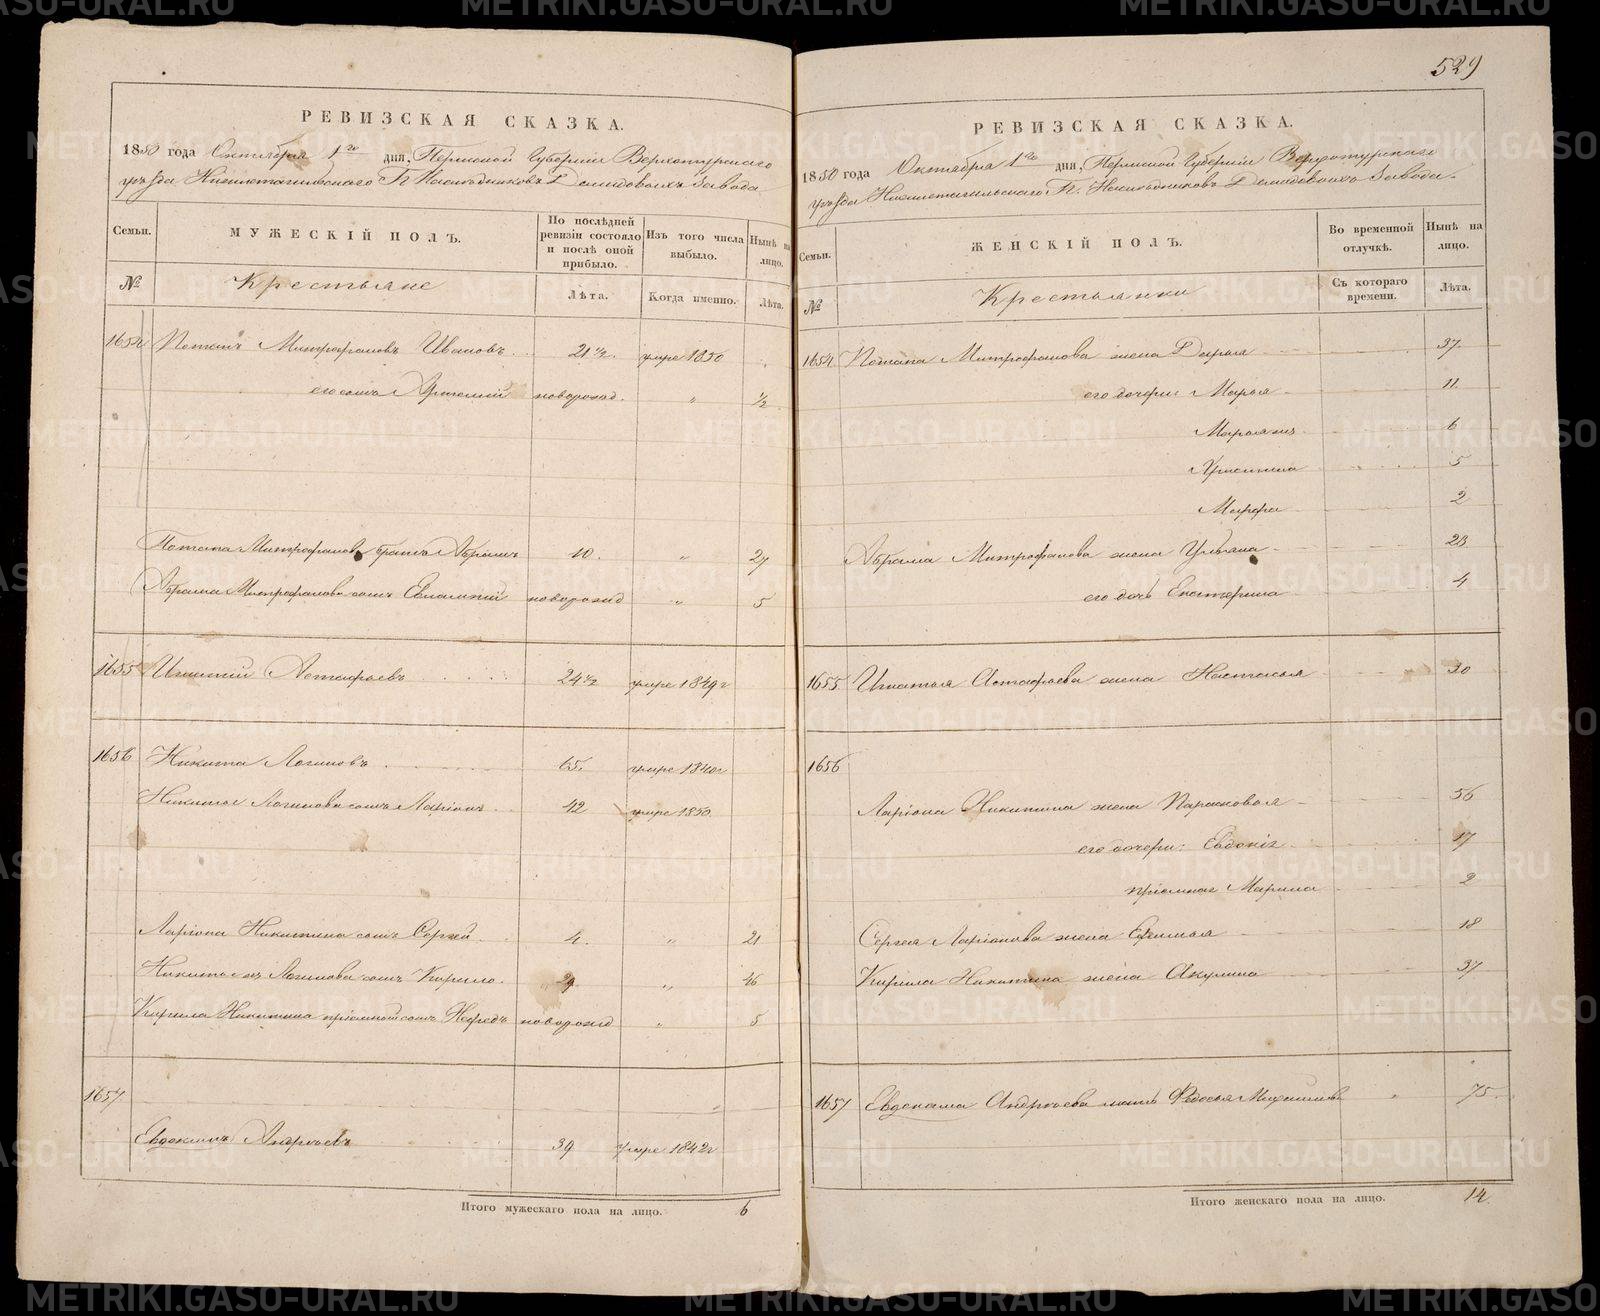 529
РЕВИЗСКАЯ СКАЗКА.
1850 года Октября 1го дня, Пермской Губернии Верхотурскаго
уѣзда Нижнетагильскаго Г.г. Наслѣдниковъ Демидовыхъ Завода
Семьи.
МУЖЕСКІЙ ПОЛЪ.
По послѣдней ревизіи состояло и послѣ оной прибыло.
Изъ того числа выбыло.
Нынѣ на лицо.
№
Крестьяне
Лѣта.
Когда именно.
Лѣта.
1654 Потапъ Митрофановъ Ивановъ 21½. умре 1850
его сынъ Артемий новорожд. " ½
Потапа Митрофанова братъ Абрамъ 10. " 27
Абрама Митрофанова сынъ Евлампий новорожд " 5
1655 Игнатий Астафьевъ 24½ умре 1849г
1656 Никита Логиновъ 65. умре 1840г
Никиты Логинова сынъ Ларіонъ 42 умре 1850.
Ларіона Никитина сынъ Сергѣй 4. " 21
Никиты Логинова сынъ Кирило. 29 " 46
Кирила Никитина пріемной сынъ новорожд " 5
1657 "
Евдокимъ Андреевъ 39 умре 1842г
Итого мужескаго пола на лицо. 6
РЕВИЗСКАЯ СКАЗКА.
1850 года Октября 1го дня, Пермской Губернии Верхотурскаго
уѣзда Нижнетагильскаго Г.г. Наслѣдниковъ Демидовыхъ Завода.
Семьи.
ЖЕНСКІЙ ПОЛЪ.
Во временной отлучкѣ.
Нынѣ на лицо.
№
Крестьянки
Съ котораго времени.
Лѣта.
1654 Потапа Митрофанова жена Дарья 37.
его дочери: Марья 11.
6
Христина 5
Марфа 2
Абрама Митрофанова жена Ульяна 28
его дочь Екатерина 4
1655 Игнатья Астафьева жена Настасья 30
1656
Ларіона Никитина жена Парасковья 56
его дочери: Евдокія 17
пріемная Марина 2
Сергея Ларіонова жена Ефимья 18
Кирила Никитина жена Акулина 37
1657 Евдокима Андреева мать Федосья " 75.
Итого женскаго пола на лицо. 14.
METRIKI.GASO-URAL.RU